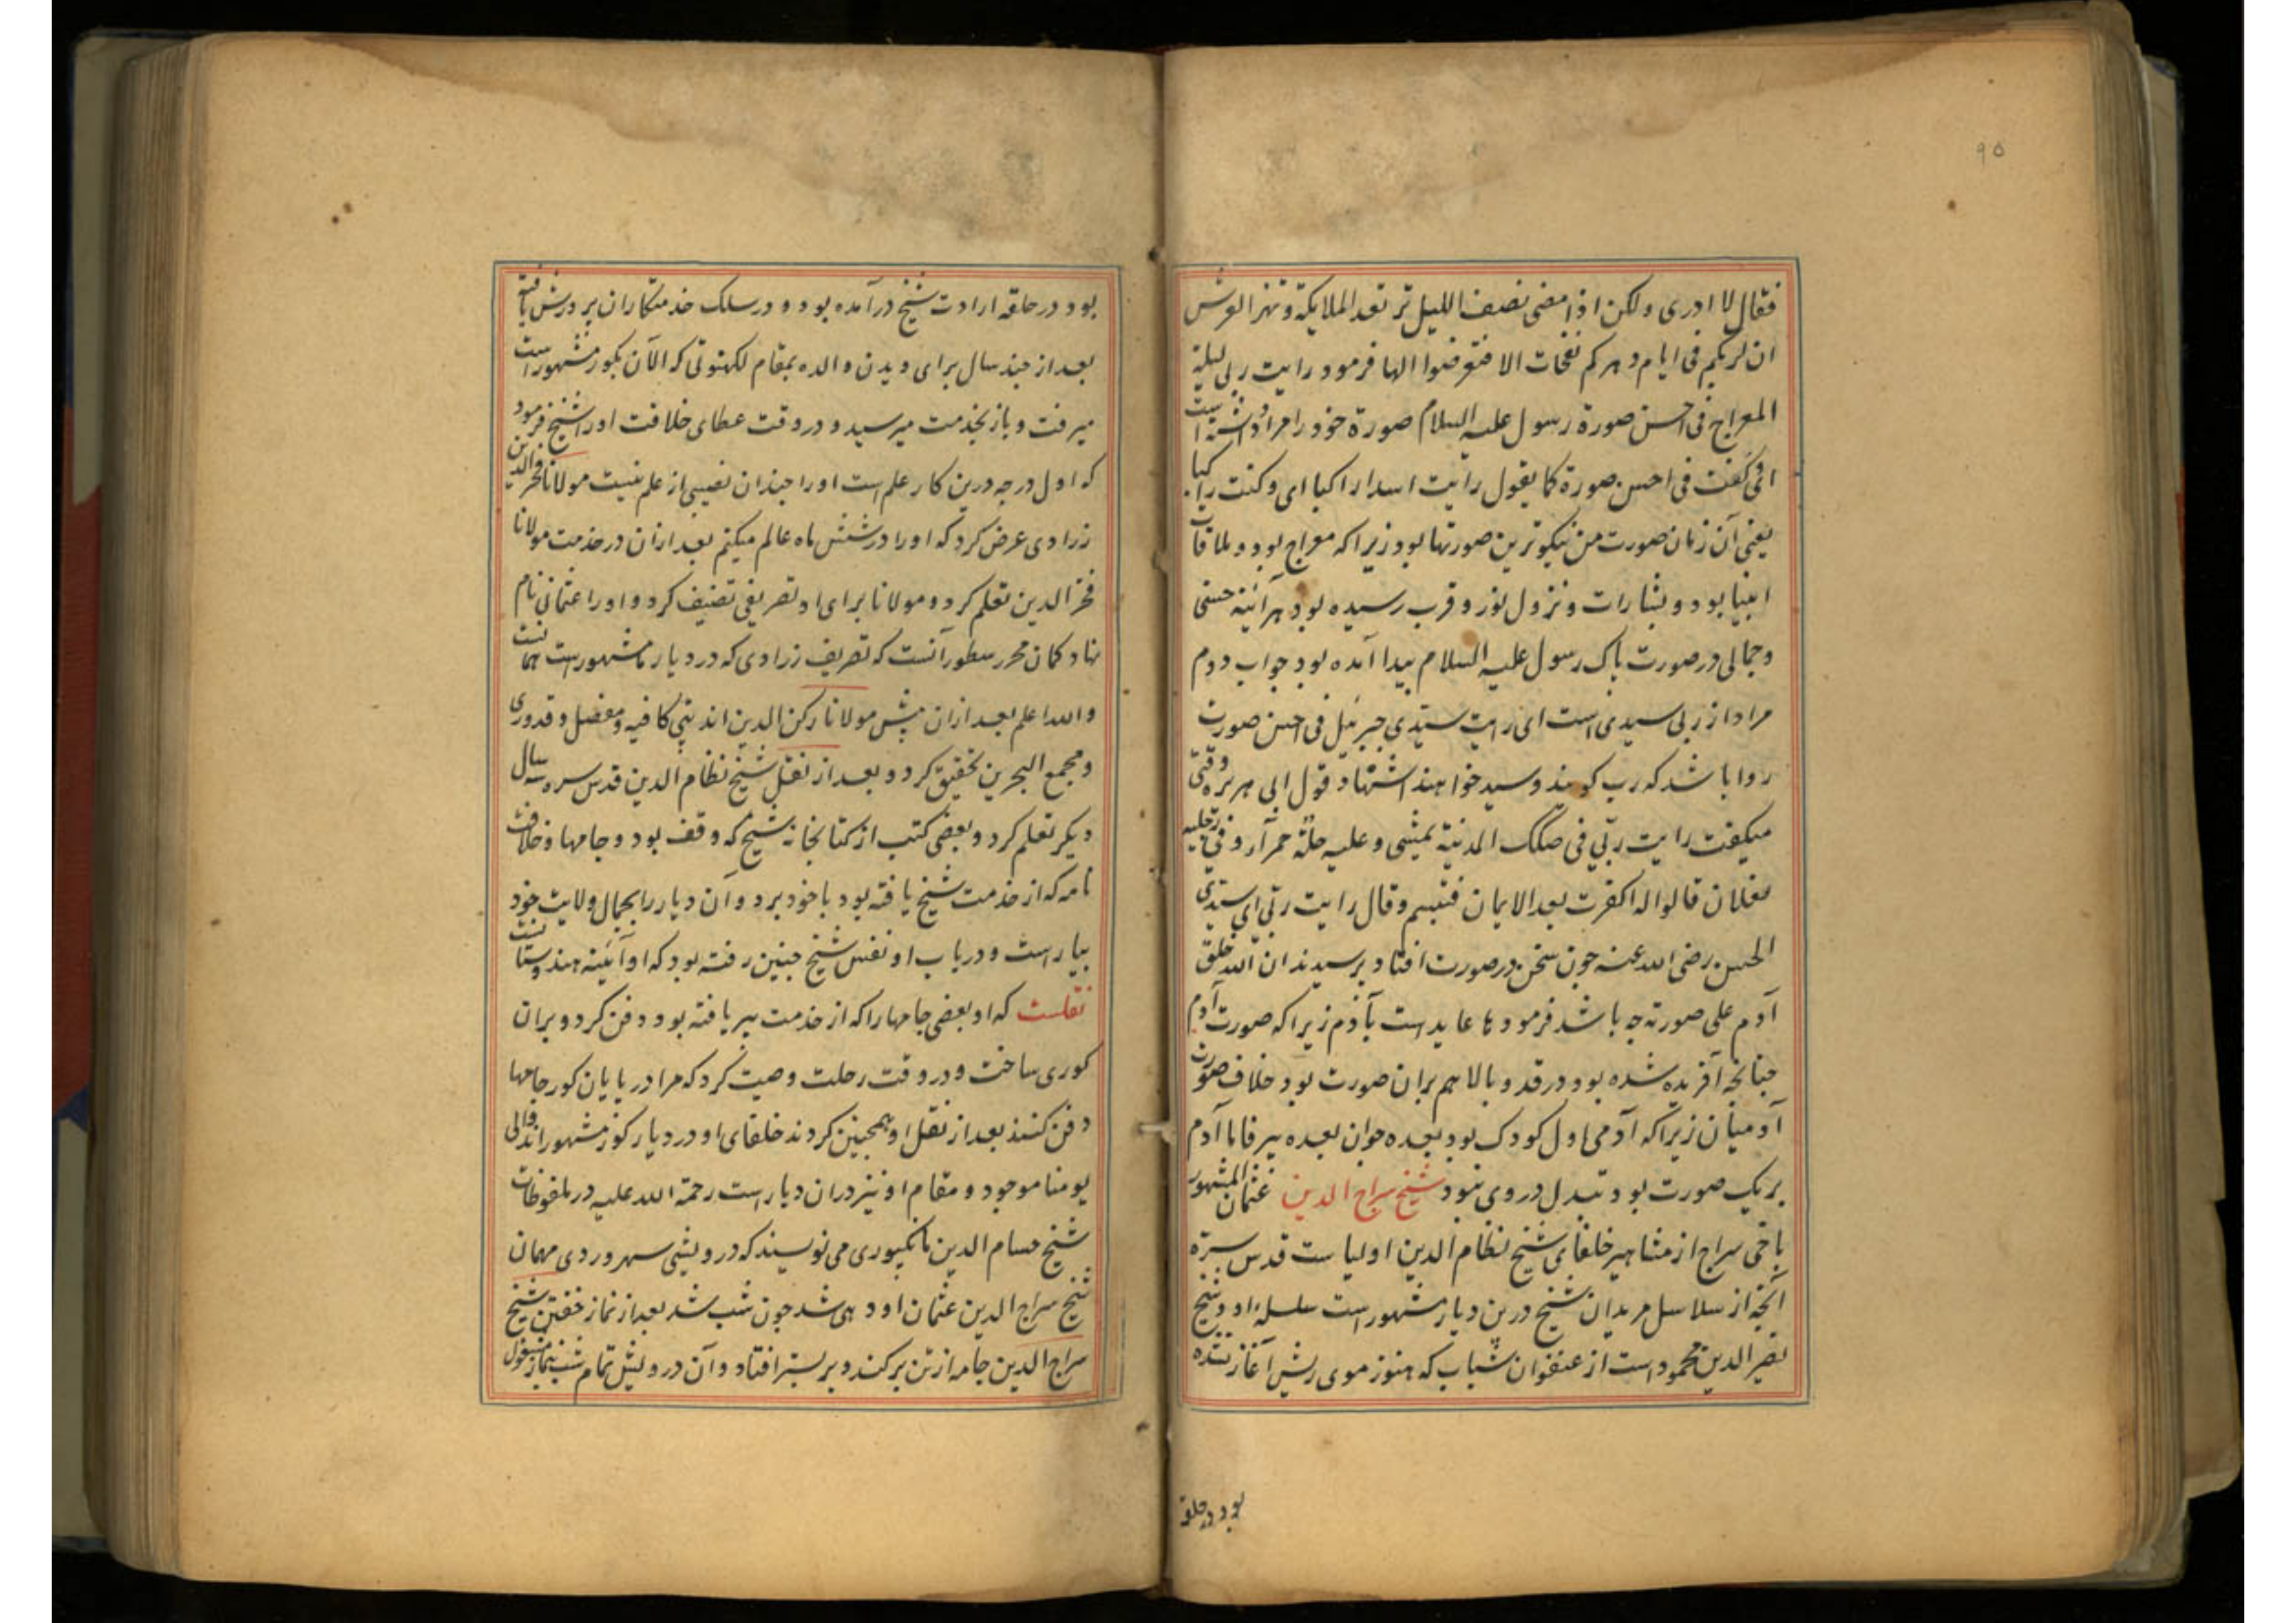 ۹۵
فقال لا ادری ولکن اذا مضی نصف اللیل ترتعد الملایکة وتهز العرش
ان لربکم فی ایام دهرکم نفحات الا فتعرضوا الها فرمود رایت ربی لیلة
المعراج فی احسن صورة رسول علیه السلام صورة خود را مراد داشته است
کفت فی احسن صورة کما یقول رایت اسدا راکبا ای وکنت راکبا
یعنی آن زمان صورت من نیکوترین صورتها بود زیراکه معراج بود و ملاقات
انبیا بود و بشارات و نزول نور و قرب رسیده بود هرآئینه حسنی
وجمالی در صورت پاک رسول علیه السلام پیدا آمده بود جواب دوم
مراد از ربی سیدی است ای رایت سیدی جبرئیل فی احسن صورت
روا باشد که رب کویند و سید خواهند اشتهاد قول ابی هریره وقتی
میکفت رایت ربی فی سکک المدنیة یمشی وعلیه حلة حمرآء و فی رجلیه
نعلان قالوا له اکفرت بعد الایمان فتبسم وقال رایت ربی ای سیدی
الحسن رضی الله عنه چون سخن در صورت افتاد پرسیدند ان الله خلق
آدم علی صورته چه باشد فرمود ها عاید است بآدم زیراکه صورت آدم
چنانچه آفریده شده بود در قد و بالا هم بران صورت بود خلاف صورت
آدمیان زیراکه آدمی اول کودک بود بعده جوان بعده پیر فاما آدم
بر یک صورت بود تبدل در وی نبود شیخ سراج الدین عثمان المشهور
باخی سراج از مشاهیر خلفای شیخ نظام الدین اولیا ست قدس سره
آنچه از سلاسل مریدان شیخ درین دیار مشهور است سلسله او و شیخ
نصیر الدین محمود است از عنفوان شباب که هنوز موی ریش آغاز نشده
بود در حلقه
بود در حلقه ارادت شیخ درآمده بود و در سلک خدمتکاران پرورش یافته
بعد از چند سال برای دیدن والده بمقام لکهنوتی که الآن بکور مشهور است
میرفت و باز بخدمت میرسید و در وقت عطای خلافت او را شیخ فرمود
که اول درجه درین کار علم است او را چندان نصیبی از علم نیست مولانا فخر الدین
زرادی عرض کرد که او را در شش ماه عالم میکنم بعد ازان در خدمت مولانا
فخر الدین تعلم کرد و مولانا برای او تصریفی تصنیف کرد و او را عثمانی نام
نهاد کمان محرر سطور آنست که تصریف زرادی که در دیار ما مشهور است همانست
والله اعلم بعد ازان پیش مولانا رکن الدین اندپتی کافیه و مفصل و قدوری
ومجمع البحرین تحقیق کرد و بعد از نقل شیخ نظام الدین قدس سره سه سال
دیکر تعلم کرد و بعضی کتب از کتابخانه شیخ که وقف بود و جامها و خلافت
نامه که از خدمت شیخ یافته بود با خود برد و آن دیار را بجمال ولایت خود
بیاراست و در باب او نفس شیخ چنین رفته بود که او آئینه هندوستانست
نقلست که او بعضی جامها را که از خدمت پیر یافته بود دفن کرد و بران
کوری ساخت و در وقت رحلت وصیت کرد که مرا در پایان کور جامها
دفن کنند بعد از نقل او همچنین کردند خلفای او در دیار کور مشهور اند والی
یومنا موجود و مقام او نیز دران دیار است رحمة الله علیه در ملفوظات
شیخ حسام الدین مانکپوری می نویسند که درویشی سهروردی مهمان
شیخ سراج الدین عثمان اودهی شد چون شب شد بعد از نماز خفتن شیخ
سراج الدین جامه از تن برکند و بر بستر افتاد و آن درویش تمام شب بنماز مشغول